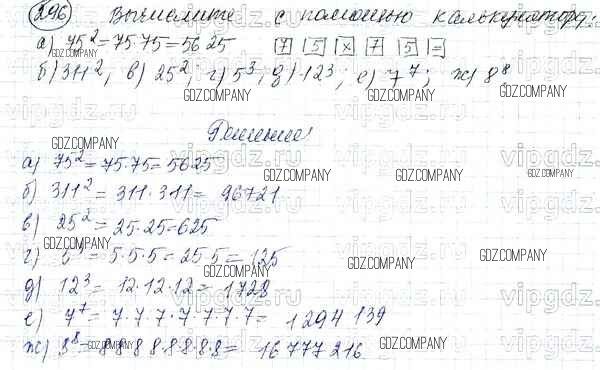 296 Вычислите с помощью калькулятора:
а) 75² = 75·75 = 5625 7 5 × 7 5 =
б) 311², в) 25², г) 5³, д) 12³; е) 7⁷; ж) 8⁸
Решение:
а) 75² = 75·75 = 5625
б) 311² = 311·311 = 96721
в) 25² = 25·25 = 625
г) 5³ = 5·5·5 = 25·5 = 125
д) 12³ = 12·12·12 = 1728
е) 7⁷ = 7·7·7·7·7·7·7 = 1294 139
ж) 8⁸ = 8·8·8·8·8·8·8 = 16 777 216
GDZ.COMPANY
vipgdz.ru